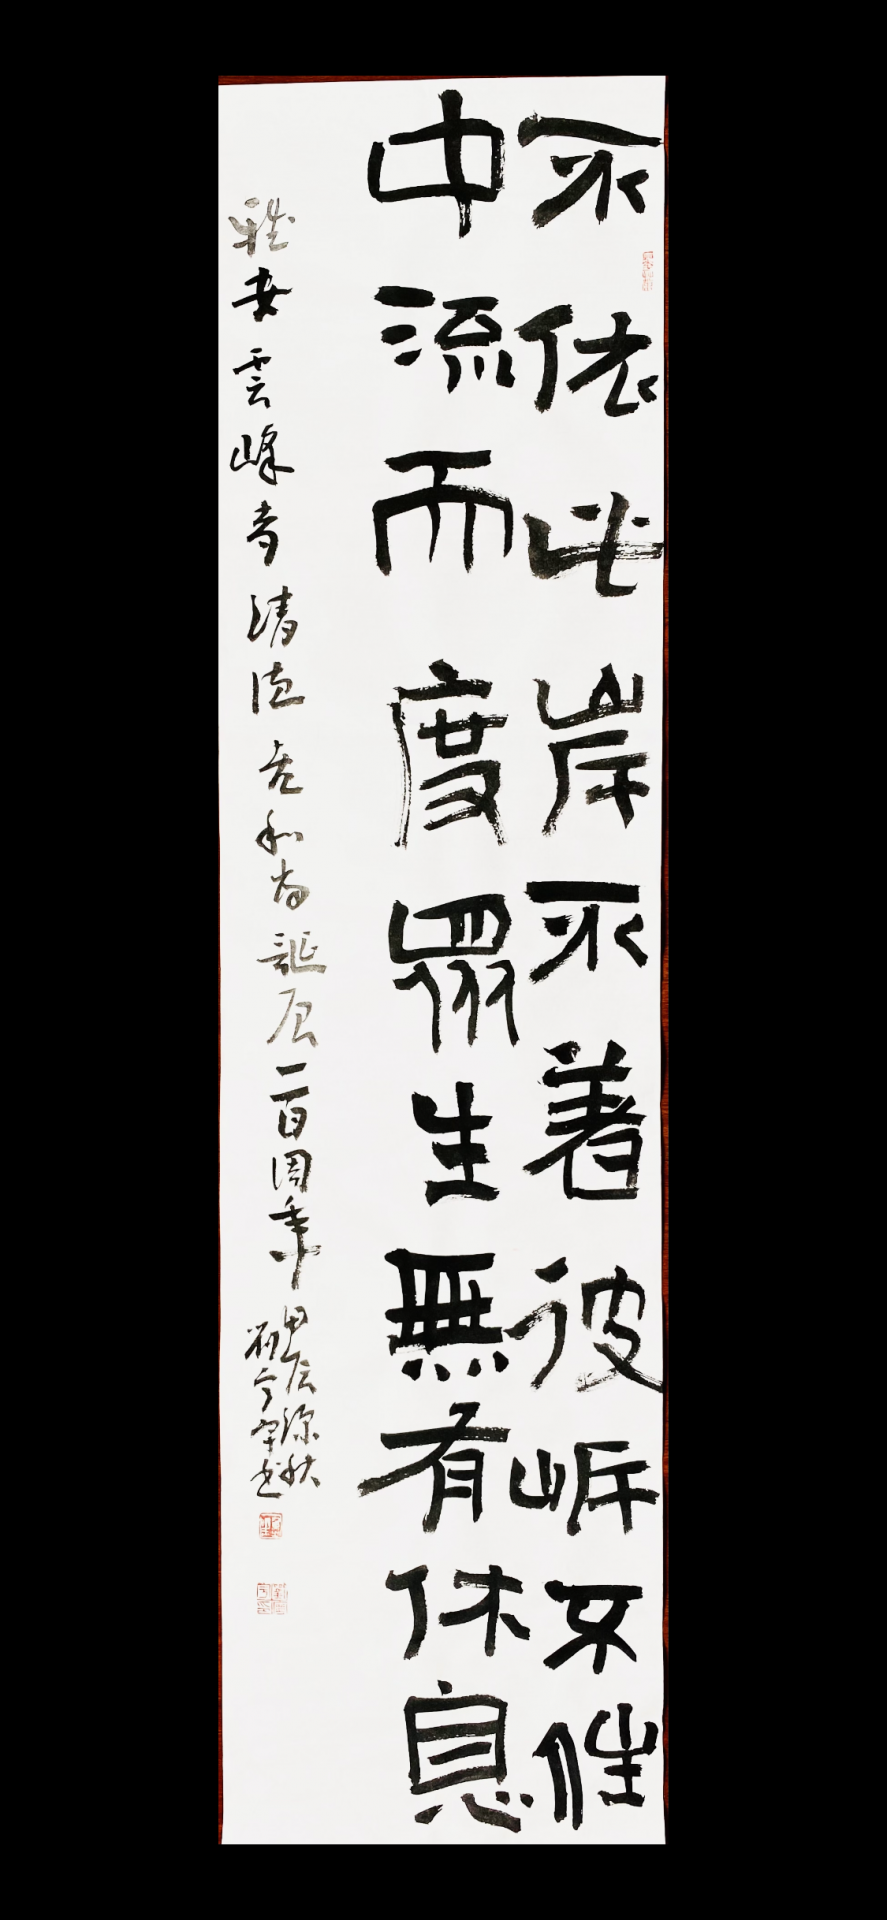 不依此岸不着彼岸不住
中流而度眾生無有休息
雅安雲峰寺清德老和尚誕辰一百周年
甲辰深秋